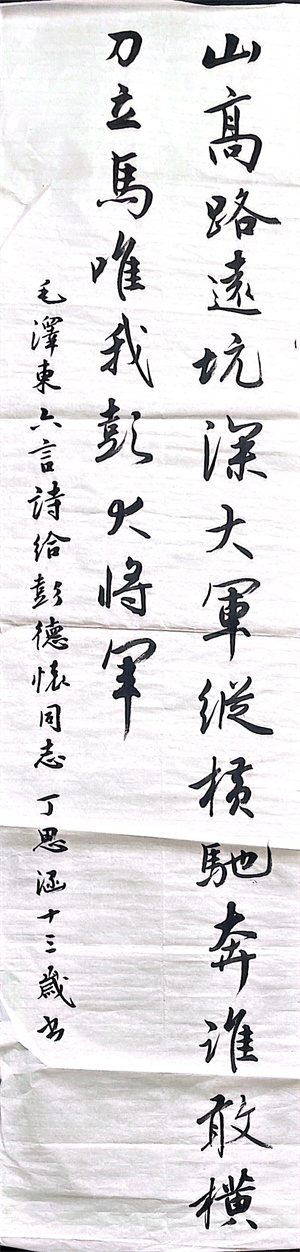 山高路遠坑深大軍縱橫馳奔誰敢橫
刀立馬唯我彭大將军
毛澤東六言詩給彭德懷同志 丁思涵十三歲书